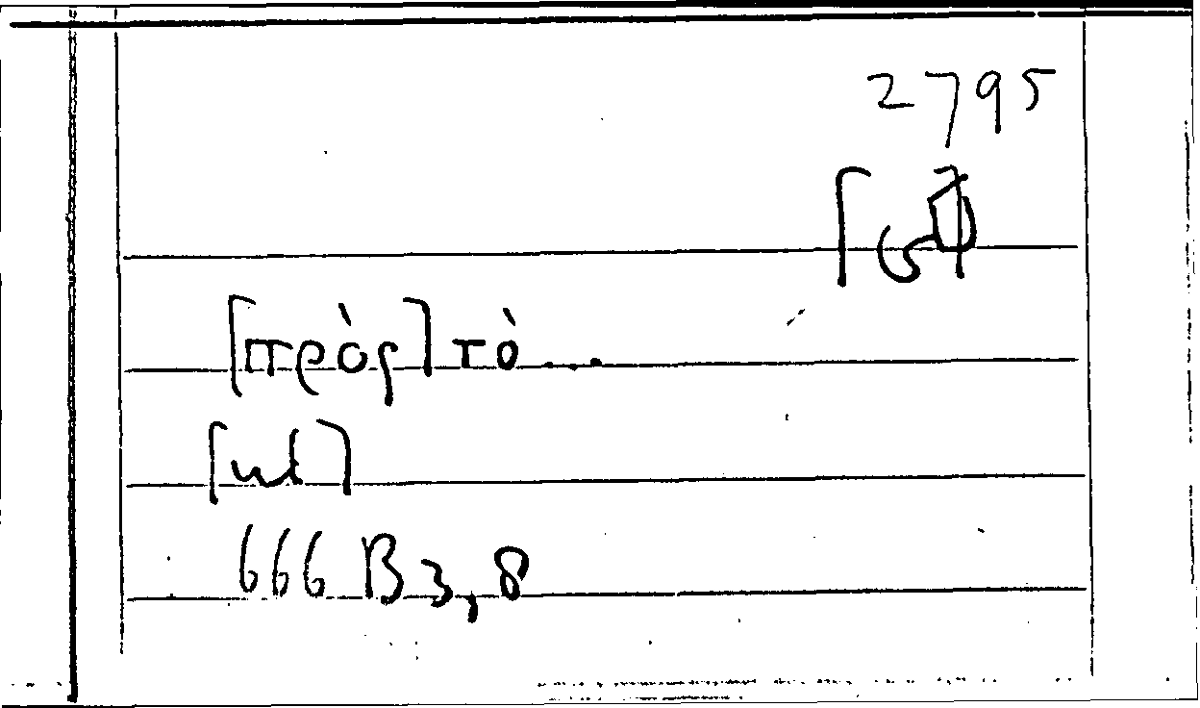 2795
[πρὸς] τὸ...
666 B 3, 8